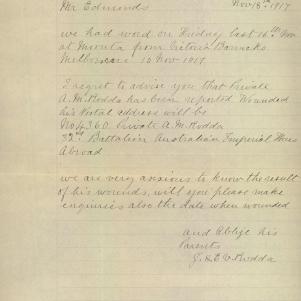 Nov 18th 1917
Mr Edmunds
we had word on Friday last 16th Nov
at Moonta from Victoria Barracks
Melbourne 10 Nov 1917
I regret to advise you that Private
A. M. Rodda has been reported Wounded
his Postal address will be
No 4360 Private A. M. Rodda
32nd Battalion Australian Imperial Forces
Abroad
we are very anxious to know the result
of his wounds, will you please make
enquiries also the date when wounded
and Oblige his
Parents
J. & E. V. Rodda